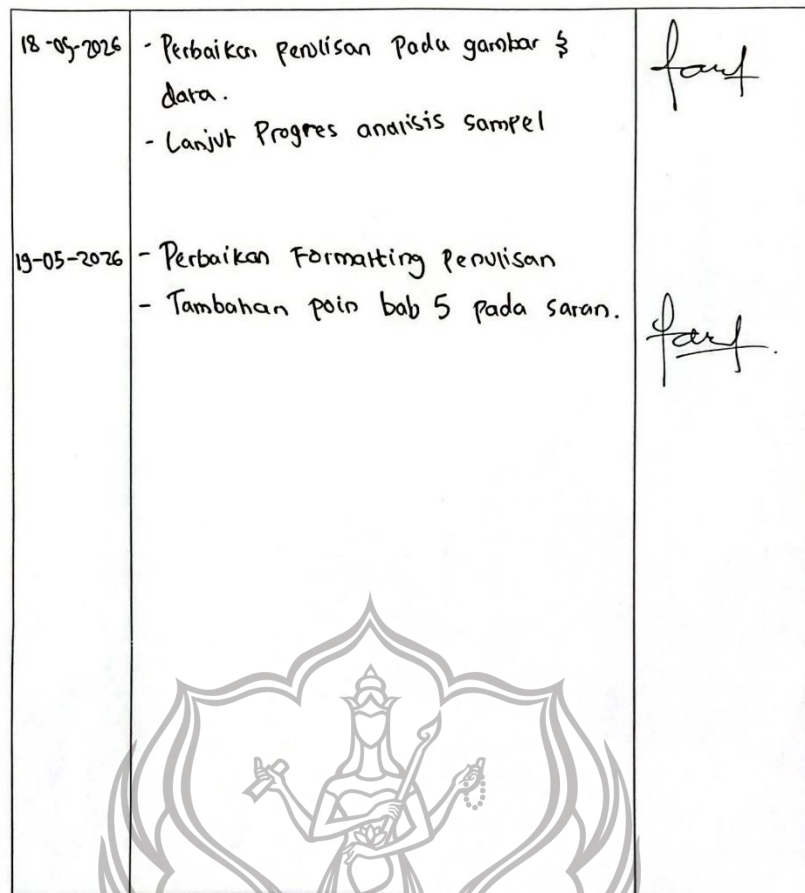 18-05-2026 - Perbaikan penulisan Pada gambar &
data.
- Lanjut Progres analisis sampel
19-05-2026 - Perbaikan Formatting Penulisan
- Tambahan poin bab 5 pada saran.